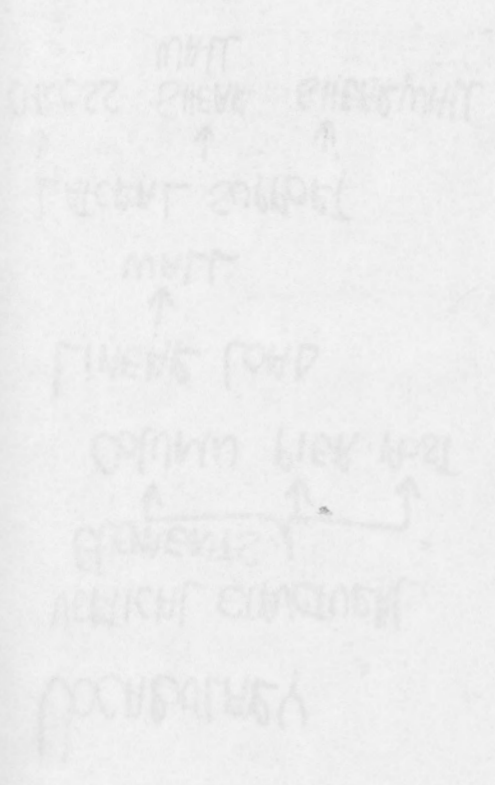 VOCABULREY
VERTICAL STRUCTURAL
ELEMENTS
COLUMN PIER POST
LINEAR LOAD
WALL
LATERAL SUPPORT
SHEAR
WALL